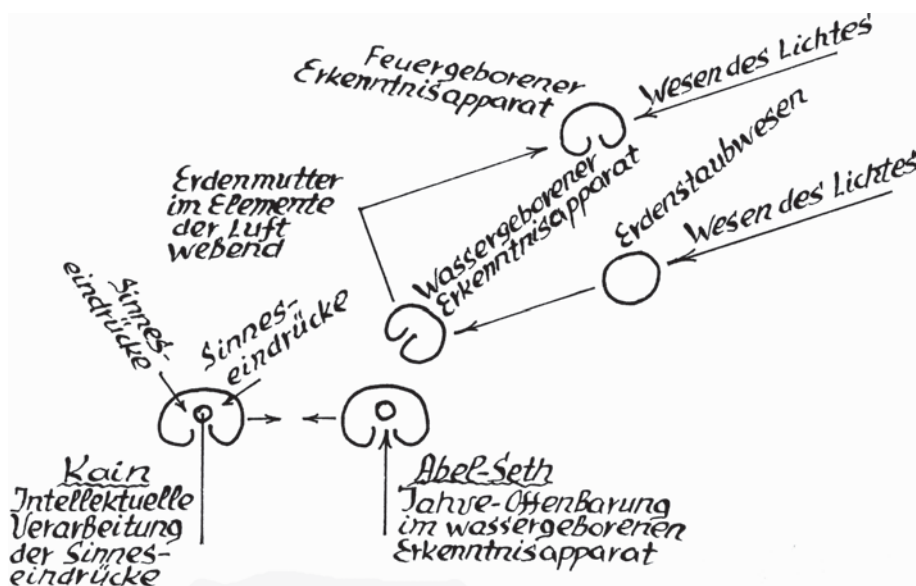 Feuergeborener
Erkenntnisapparat
Wesen des Lichtes
Erdenmutter
im Elemente
der Luft
webend
Wassergeborener
Erkenntnisapparat
Erdenstaubwesen
Wesen des Lichtes
Sinnes-
eindrücke
Sinnes-
eindrücke
Kain
Intellektuelle
Verarbeitung
der Sinnes-
eindrücke
Abel-Seth
Jahve-Offenbarung
im wassergeborenen
Erkenntnisapparat